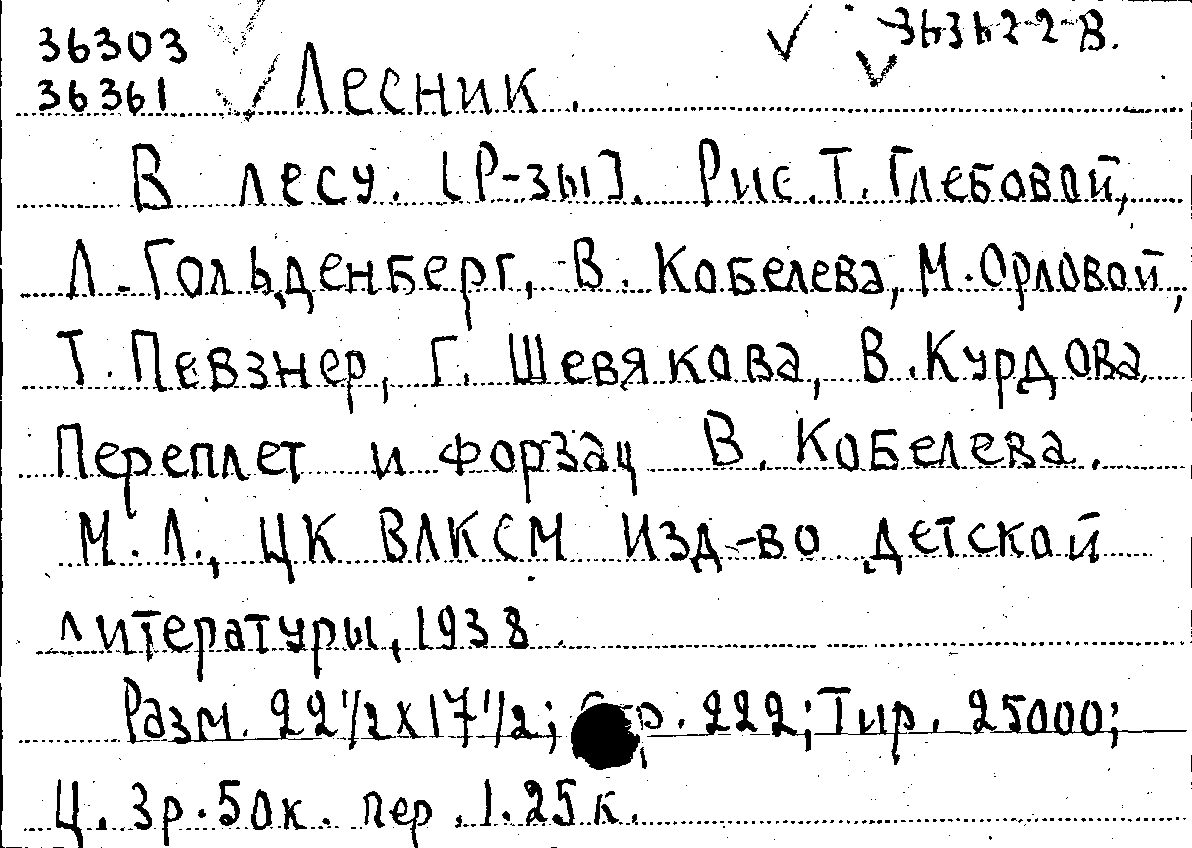 36303
36361
36362-2-В.
Лесник.
В лесу. [Р-зы]. Рис. Т. Глебовой,
Л. Гольденберг, В. Кобелева, М. Орловой,
Т. Певзнер, Г. Шевякова, В. Курдова
Переплет и форзац В. Кобелева.
М. Л., ЦК ВЛКСМ Изд-во детской
литературы, 1938
Разм. 22 1/2 х 17 1/2; Стр. 222; Тир. 25000;
Ц. 3р. 50к. пер. 1.25 к.